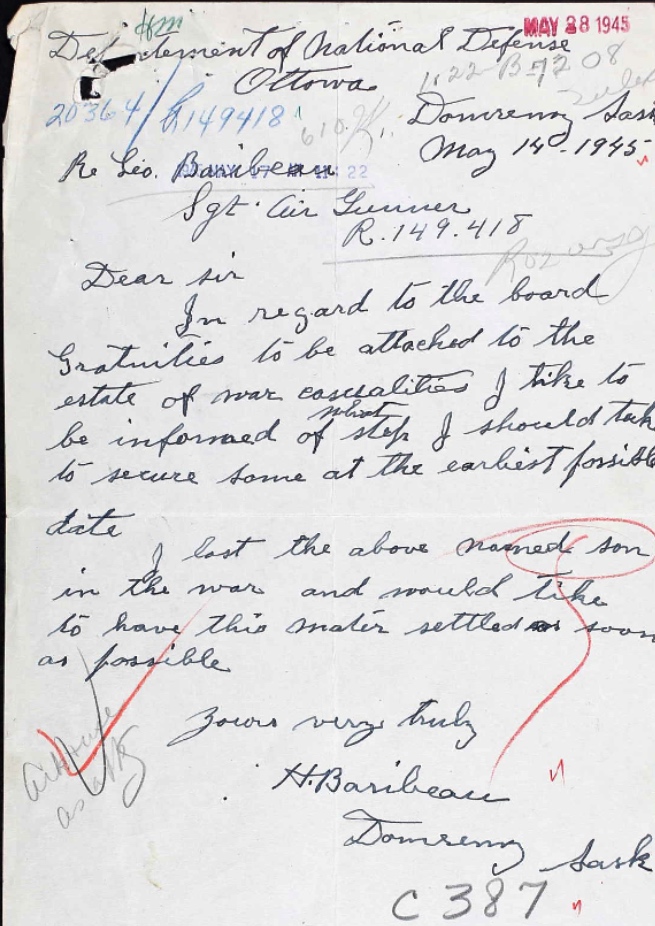 MAY 28 1945
Department of National Defense
Ottowa
1:22-B-7208
20364/R149418
Domremy Sask
May 14-1945
Re Leo. Baribeau
22
Sgt. Air Gunner
R.149.418
Dear sir
In regard to the board
Gratuities to be attached to the
estate of war casualities I like to
what
be informed of step I should take
to secure same at the earliest possible
date
I lost the above named son
in the war and would like
to have this mater settled as soon
as possible
Yours very truly
H. Baribeau
Domremy Sask
C 387